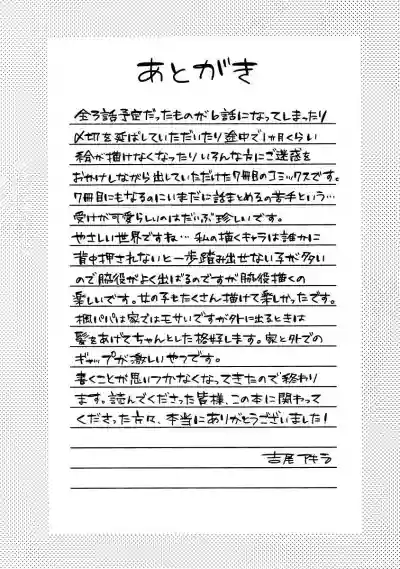 あとがき
全3話予定だったものが6話になってしまったり
〆切を延ばしていただいたり途中で1ヵ月くらい
私が描けなくなったりいろんな方にご迷惑を
おかけしながら出していただけた7冊目のコミックスです。
7冊目にもなるのにいまだに話まとめるの苦手という…
受けが可愛らしいのはだいぶ珍しいです。
やさしい世界ですね…私の描くキャラは誰かに
背中押されないと一歩踏み出せない子が多い
ので脇役がよく出ばるのですが脇役描くの
楽しいです。女の子もたくさん描けて楽しかったです。
パパは家ではモサいですが外に出るときは
髪をあげてちゃんとした格好します。家と外での
ギャップが激しいやつです。
書くことが思いつかなくなってきたので終わり
ます。読んでくださった皆様、この本に関わって
くださった方々、本当にありがとうございました!
吉尾アキラ